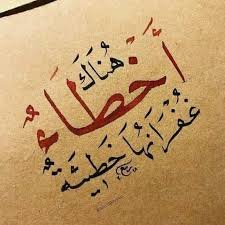 هُنَاكَ
أَخْطَاءٌ
غُفْرَانُهَا خَطِيئَةٌ